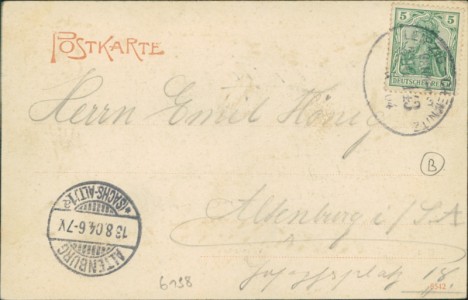 POSTKARTE
5
DEUTSCHES REICH
Herrn Emil König
B
Altenburg i/S.A.
18.
ALTENBURG
13.8.04.6-7N.
*(SACHS-ALT.)1.R
6542
6998